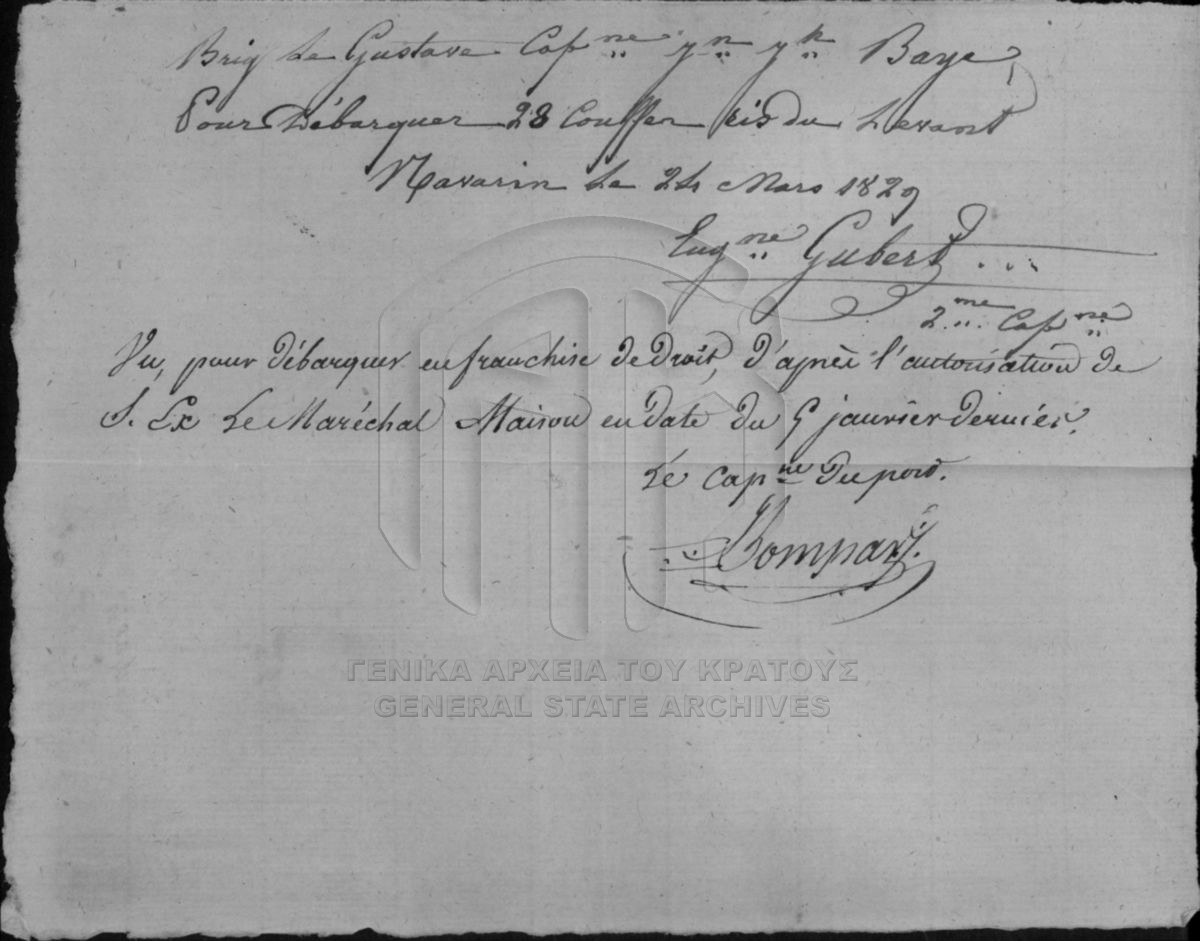 Brig Le Gustave Cap.ne J.n J.h Baye
Pour Débarquer 28 Couffes ris du Levant
Navarin Le 24 Mars 1829
Eug.ne Gubert ...
2.me Cap.ne
Vu, pour débarquer en franchise de Droit, d'après l'autorisation de
S. Ex Le Maréchal Maison en date du 5 janvier dernier.
Le Cap.ne Du port.
Bompar
ΓΕΝΙΚΑ ΑΡΧΕΙΑ ΤΟΥ ΚΡΑΤΟΥΣ
GENERAL STATE ARCHIVES